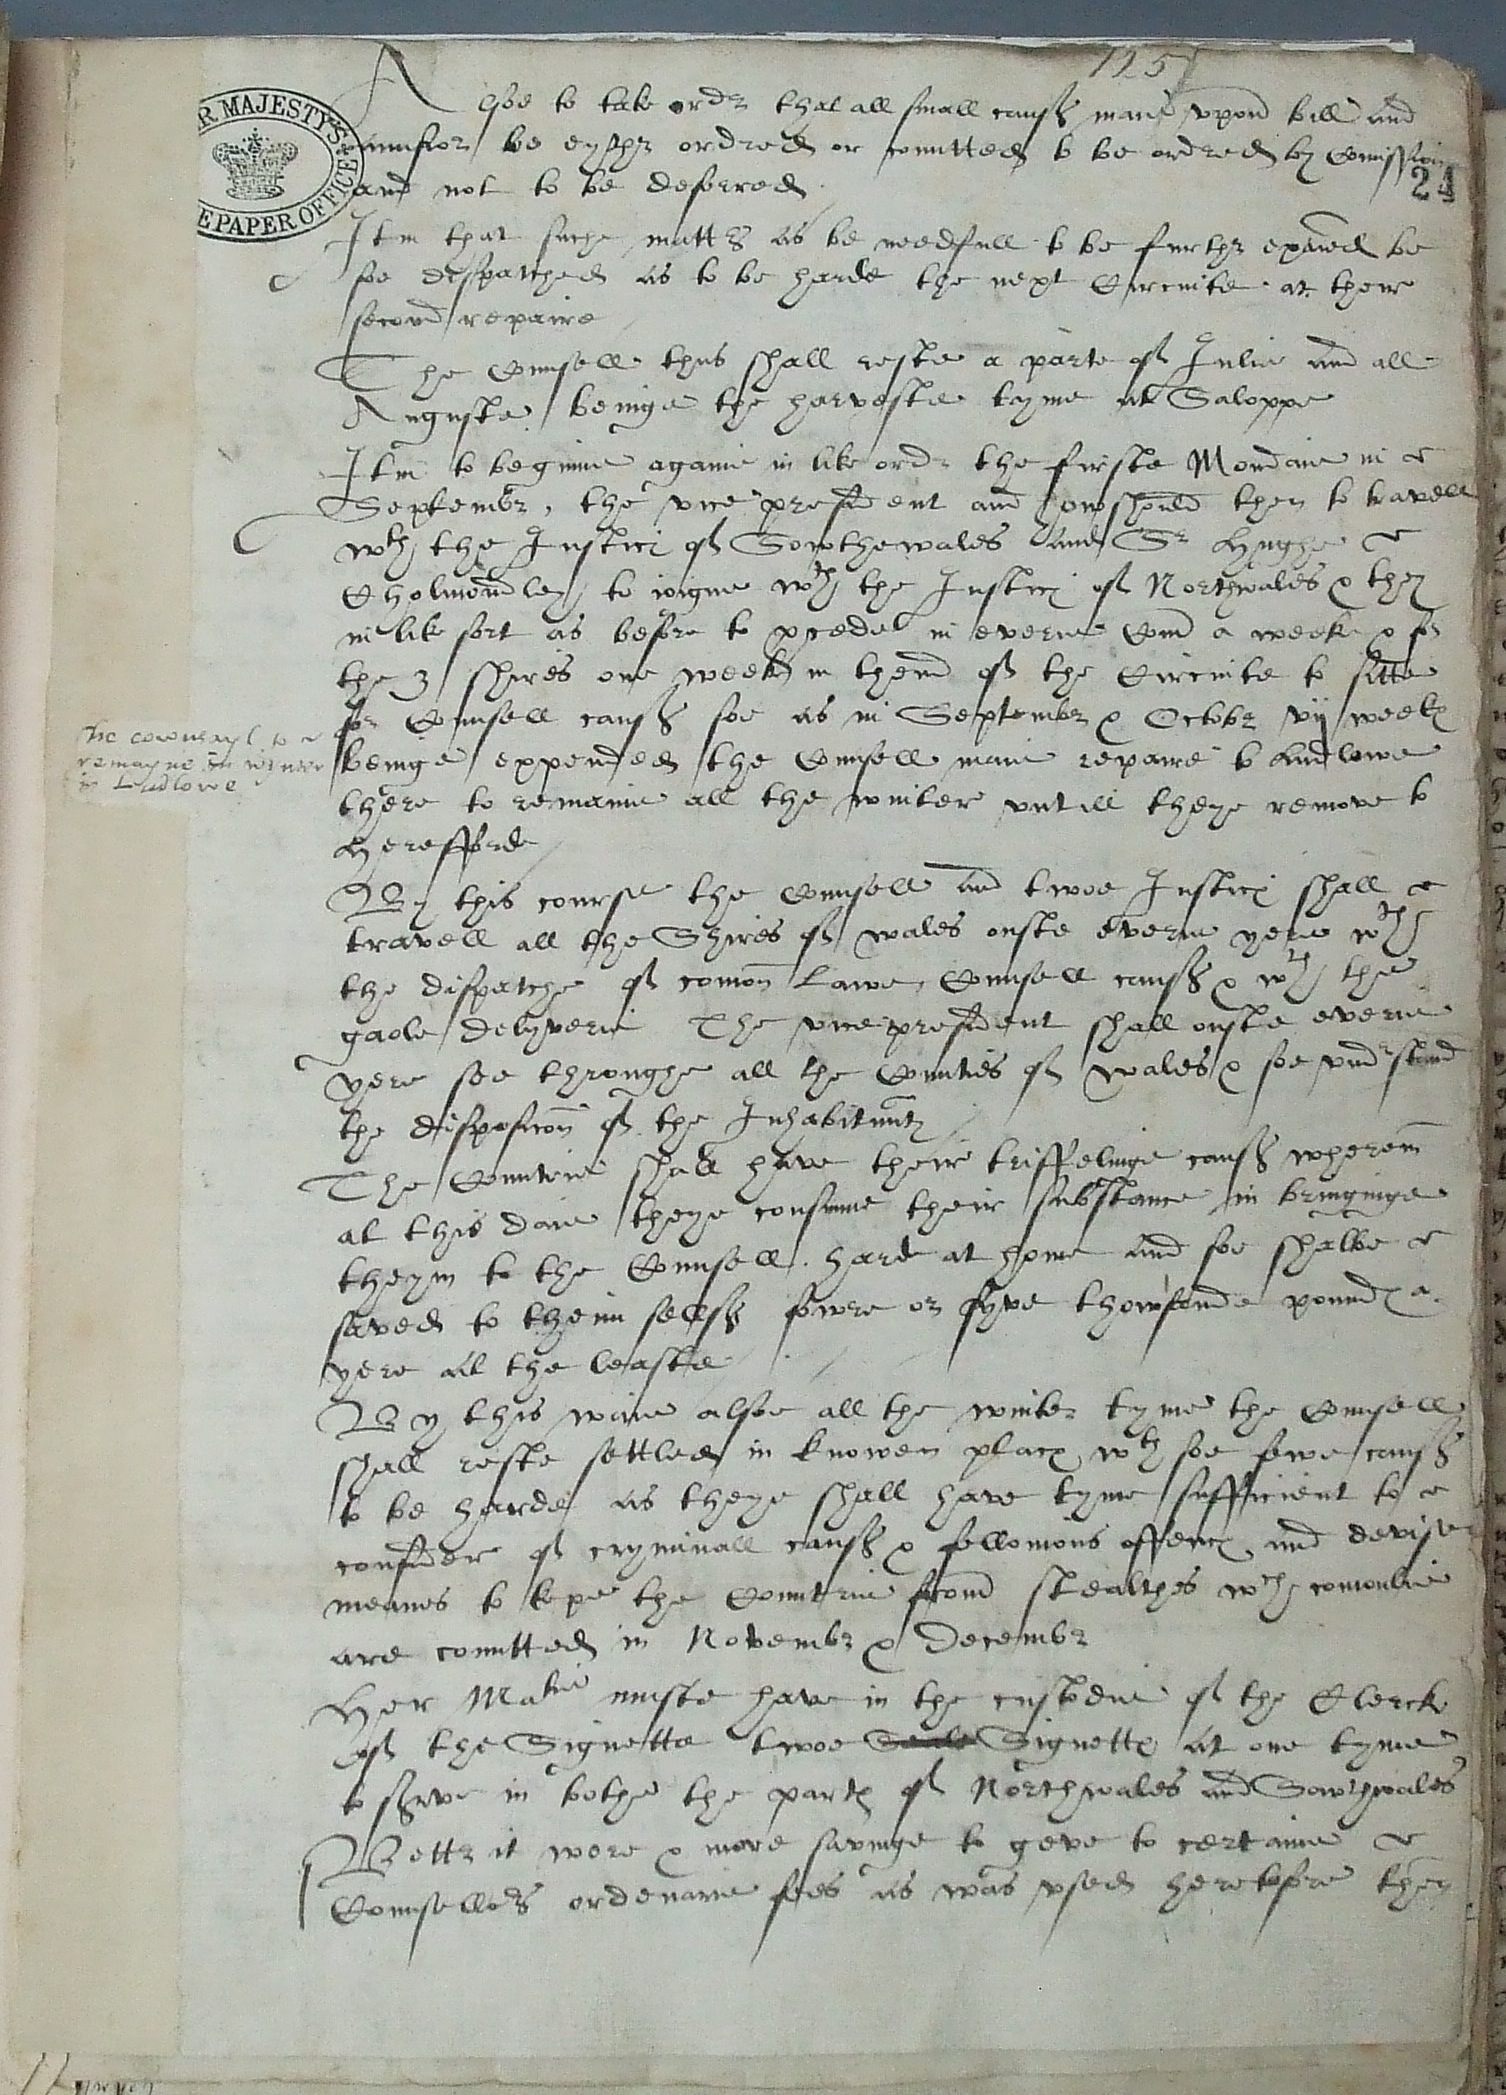 125
Alsoe to take ordr that all small causs maie vpon bill and
aunswor be eythr ordred or comitted to be ordred by Comission
24
and not to be deferred
HER MAJESTY'S
STATE PAPER OFFICE
Itm that suche mattrs as be needfull to be furthr exaied be
soe dispatched as to be harde the next Circuite at their
second repaire
The Counsell thus shall reste a parte of Julie and all
Auguste beinge the harveste tyme at Saloppe
Itm to beginne againe in like ordr the firste Mondaie in
Septembr, the vice president and then to travell
wth the Justics of Sowthewales and Sr Hughe
Cholmondley to ioigne wth the Justics of Northwales & they
in like sort as before to pcede in everie Com a weeke & for
the 3 shires one weeke in thend of the Circuite to sitte
for Counsell causs soe as in Septembr & Octobr vij weeks
beinge expended the Counsell maie repaire to Ludlowe
The counsayl to
remayne in winter
in Ludlowe
there to remaine all the winter vntill theye remove to
Herefforde
By this course the Counsell and twoe Justics shall
travell all the Shires of wales onste everie yere wth
the dispatche of comon Lawe, Counsell causs & wth the
gaole delyverie The vice president shall onste everie
yere see throughe all the Counties of Wales & soe vndrstand
the disposicon of the Inhabitants
The Countrie shall have their triffelinge causs wherein
at this daie theye consume their substance in bringinge
theym to the Counsell hard at home and soe shalbe
saved to theim selfs fowre or fyve thowsande pounds a
yere at the leaste
By this waie alsoe all the wintr tyme the Counsell
shall reste settled in knowen placs wth soe fewe causs
to be harde as theye shall have tyme sufficient to
consider of cryminall causs & fellonious offencs and devise
meanes to kepe the Countrie from stealthes wch comonlie
are comitted in Novembr & Decembr
Her Matie muste have in the custodie of the Clerck
of the Signette twoe Seale Signetts at one tyme
to serve in bothe the parts of Northwales and Sowthwales
Bettr it were & more savinge to geve to certaine
Counsellors ordenarie fees as was vsed heretofore then